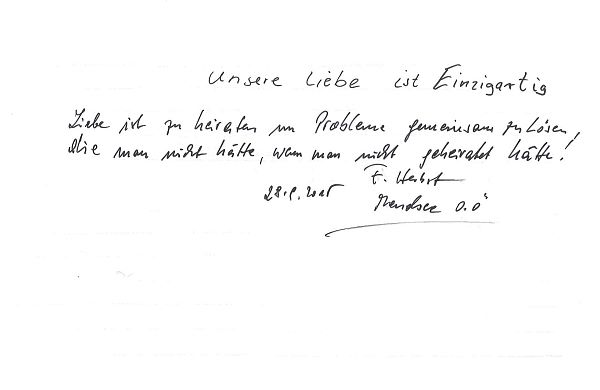 Unsere Liebe ist Einzigartig
Liebe ist zu heiraten um Probleme gemeinsam zu lösen,
die man nicht hätte, wenn man nicht geheiratet hätte!
F. Herbst
28.9.2015
Mondsee O.Ö